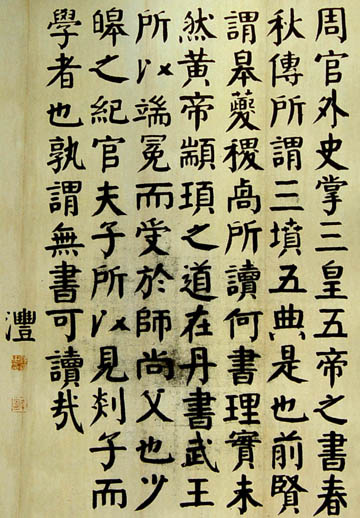 周官外史掌三皇五帝之書春
秋傳所謂三墳五典是也前賢
謂皋夔稷卨所讀何書理實未
然黃帝顓頊之道在丹書武王
所以端冕而受於師尚父也少
皞之紀官夫子所以見郯子而
學者也孰謂無書可讀哉
灃